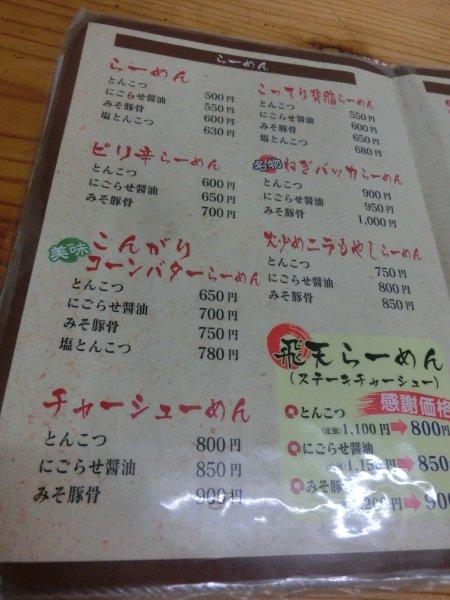 らーめん
らーめん
とんこつ 500円
にごらせ醤油 550円
みそ豚骨 600円
塩とんこつ 630円
ピリ辛らーめん
とんこつ 600円
にごらせ醤油 650円
みそ豚骨 700円
美味 こんがり
コーンバターらーめん
とんこつ 650円
にごらせ醤油 700円
みそ豚骨 750円
塩とんこつ 780円
チャーシューめん
とんこつ 800円
にごらせ醤油 850円
みそ豚骨 900円
こってり背脂らーめん
とんこつ 550円
にごらせ醤油 600円
みそ豚骨 650円
塩とんこつ 680円
名物 ねぎバッカらーめん
とんこつ 900円
にごらせ醤油 950円
みそ豚骨 1,000円
火炒めニラもやしらーめん
とんこつ 750円
にごらせ醤油 800円
みそ豚骨 850円
飛天らーめん
(ステーキチャーシュー)
とんこつ 感謝価格
(定価)1,100円 800円
にごらせ醤油
1,150円 850
みそ豚
200円 900